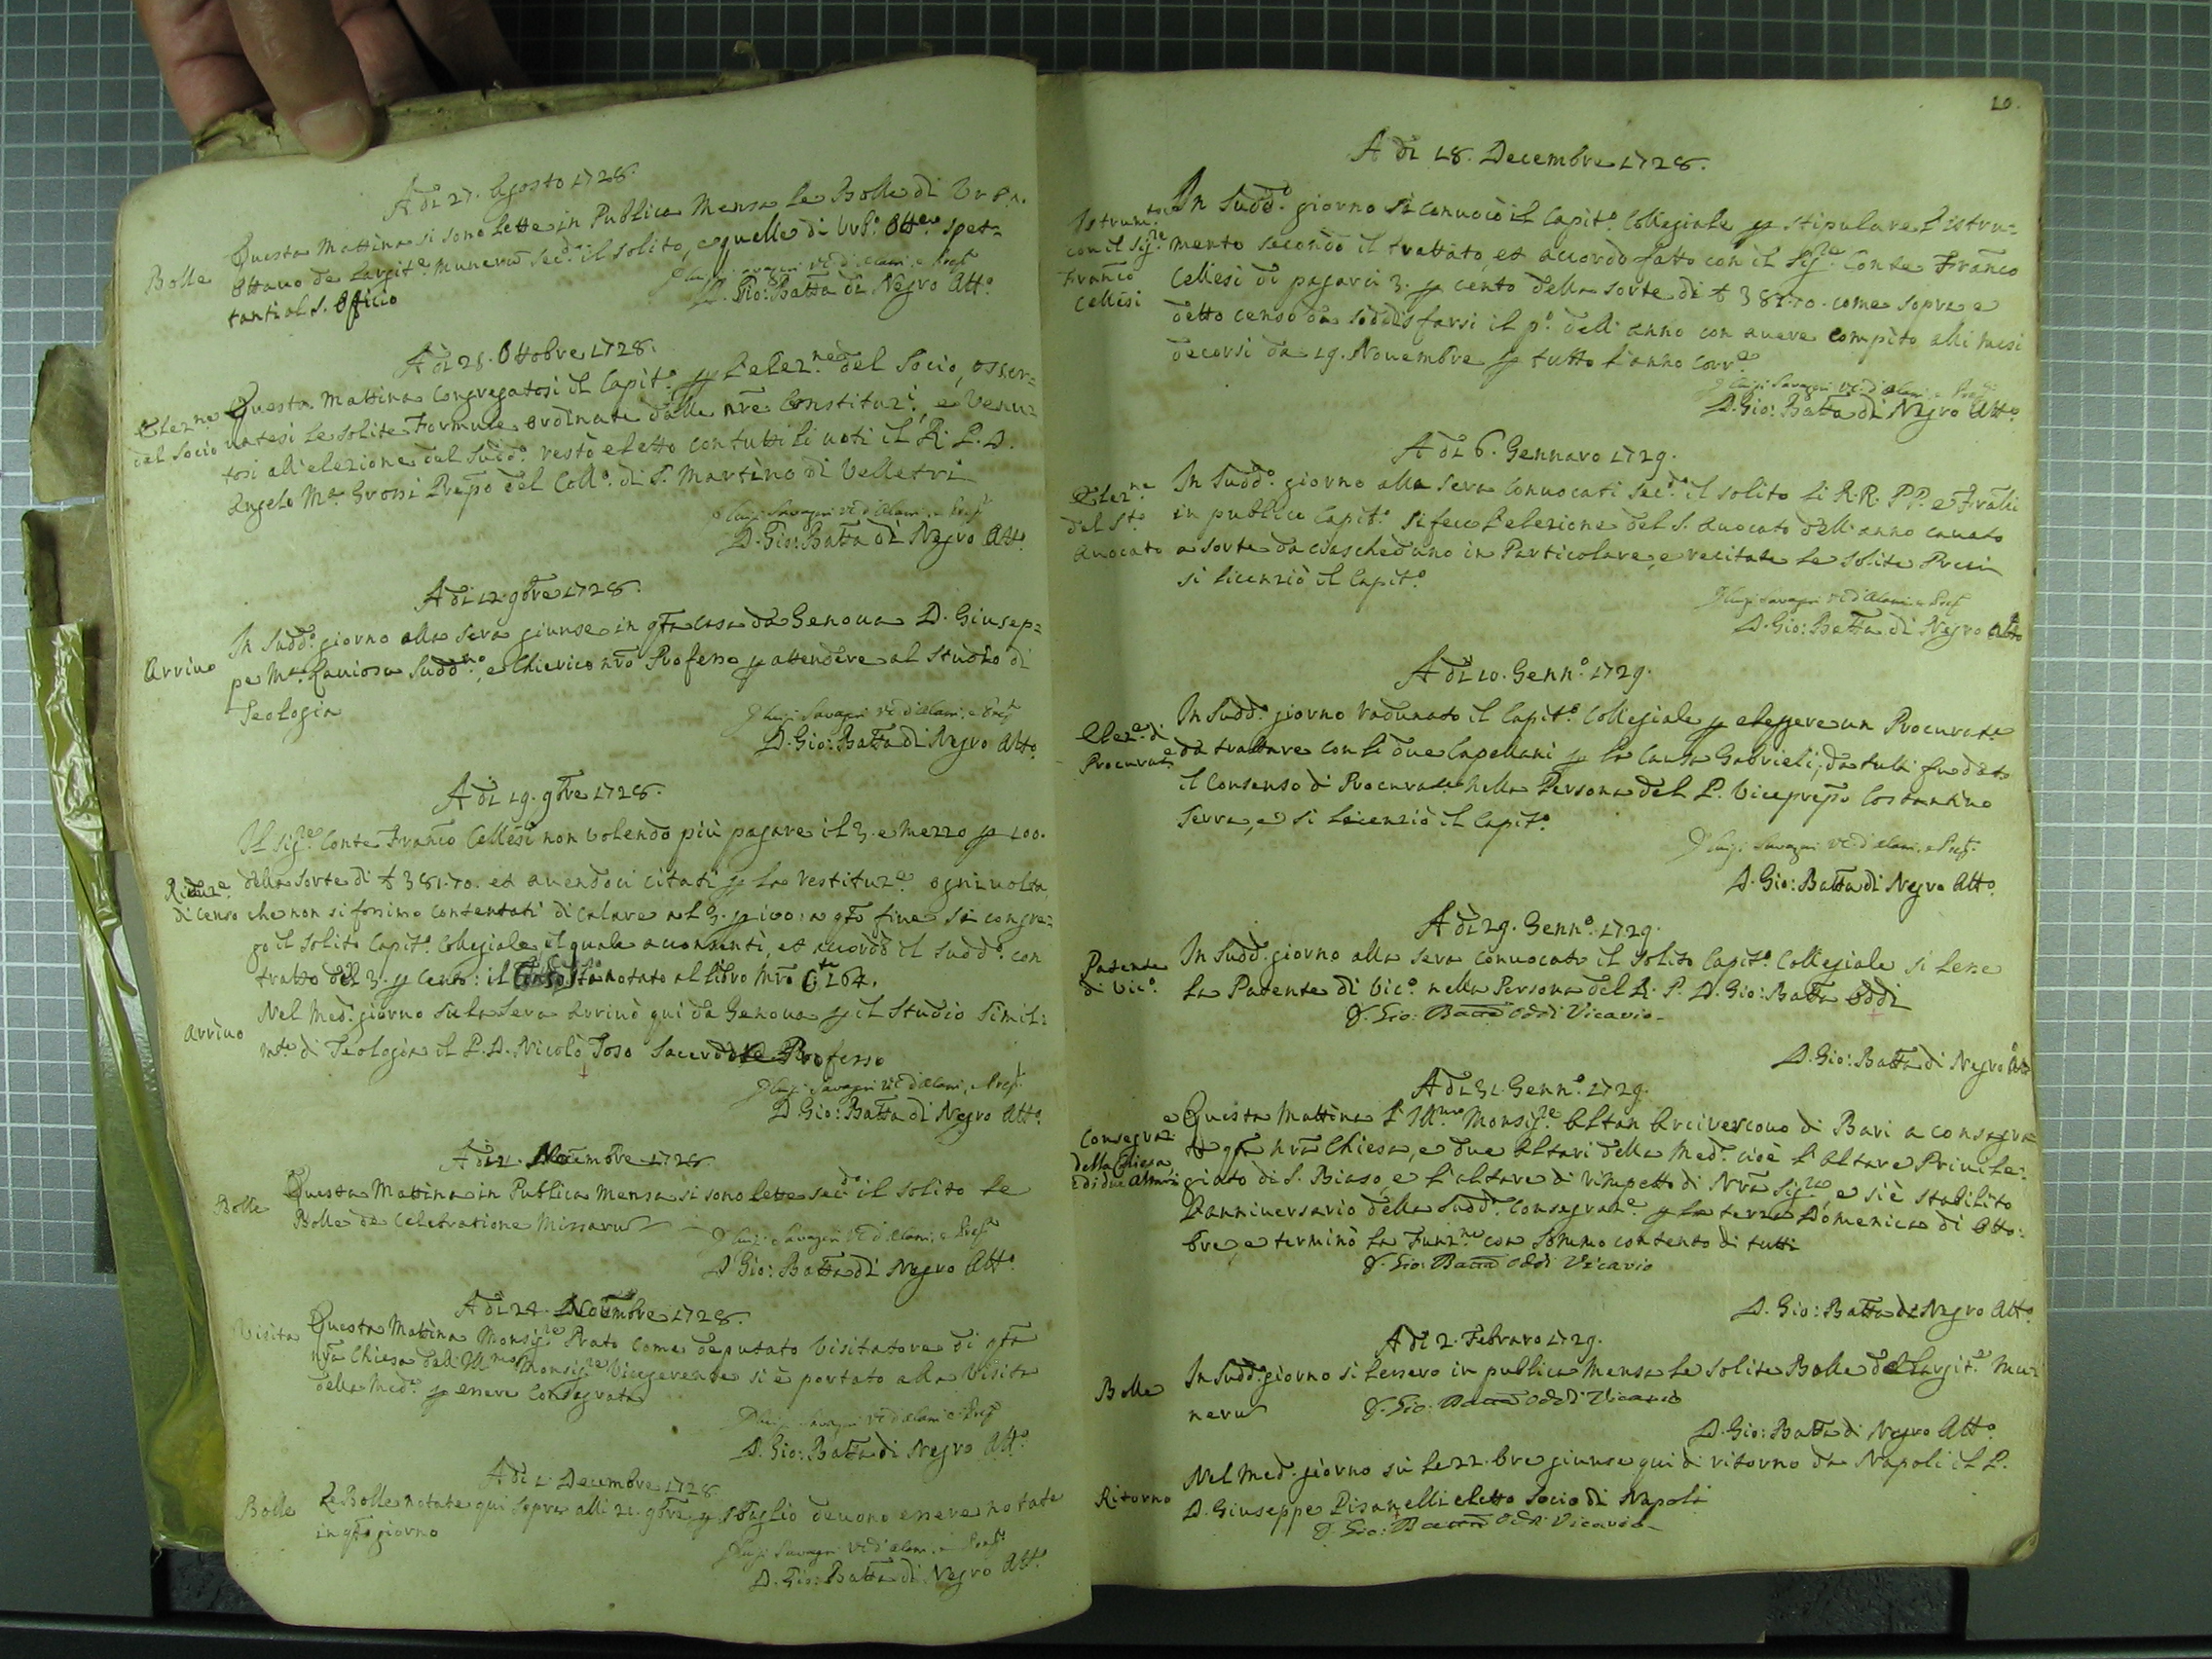 A dì 27. Agosto 1728.
Bolle
Questa Mattina si sono lette in Publica Mensa le Bolle di Urb.o
Ottavo de Largit.e Munerũ sec.do il solito, e quelle di Urb.o Ottavo spet=
tanti al S. Officio
D. Gio: Batta di Negro Att.o
A dì 28. Ottobre 1728.
Elez.ne del Socio
Questa Mattina Congregatosi il Capit.o p l'elez.ne del Socio, osser=
vatesi le solite Formule ordinate dalle nrẽ Constituz.i, e Venu=
tosi all'elezione del Sudd.o restò eletto con tutti li voti il R. P. D.
Angelo M.a Grossi Prepõ del Coll.o di S. Martino di Velletri
D. Gio: Batta di Negro Att.o
A dì 12. 9bre 1728.
Arrivo
In Sudd.o giorno alla sera giunse in qta casa da Genova D. Giusep=
pe M.a Laviosa Sudd.no, e Chierico nrõ Professo p attendere al Studio di
Teologia
D. Gio: Batta di Negro Att.o
A dì 19. 9bre 1728.
Riduz.e di censo
Il Sig.re Conte Franco Cellesi non volendo più pagare il 3. e mezzo p 100.
della sorte di 381.70. et avendoci citati p la restituz.e ogni volta,
che non si fossimo contentati di calare al 3. p 100: a qto fine si congre=
gò il solito Capit.o Collegiale il quale acconsentì, et accordò il sudd.o con
tratto del 3. p Cento: il Censo sta notato al libro Mrõ C.te 164.
Arrivo
Nel Med.o giorno su la Sera arrivò qui da Genova p il Studio simil=
m.te di Teologia il P. D. Nicolò Toso Sacerdote Professo
D. Gio: Batta di Negro Att.o
A dì 21. Novembre 1728.
Bolle
Questa Mattina in Publica Mensa si sono lette sec.do il solito le
Bolle de Celebratione Missarũ
D. Gio: Batta di Negro Att.o
A dì 24. Novembre 1728.
Visita
Questa Mattina Monsig.re Prato come deputato Visitatore di qta
nrã Chiesa dell'Ill.mo Monsig.re Vicegerente si è portato alla Visita
della Med.a p essere Consagrata
D. Gio: Batta di Negro Att.o
A dì 1. Decembre 1728.
Bolle
Le Bolle notate qui sopra alli 21. 9bre p sbaglio devono essere notate
in qto giorno
D. Gio: Batta di Negro Att.o
10.
A dì 18. Decembre 1728.
Istrum.to con il Sig.re Franco Cellesi
In Sudd.o giorno si convocò il Capit.o Collegiale p stipulare l'istru=
mento secondo il trattato, et accordo fatto con il Sig.re Conte Franco
Cellesi di pagarci 3. p cento della sorte di 381.70. come sopra e
detto censo da soddisfarsi il p.o dell'anno con avere compito alli mesi
decorsi da 19. Novembre p tutto l'anno Corr.e
D. Gio: Batta di Negro Att.o
A dì 6. Gennaro 1729.
Elez.ne del S.to Avocato
In Sudd.o giorno alla sera Convocati sec.do il solito li R.R. PP. e Fratelli
in publico Capit.o si fece l'elezione del S. Avocato dell'anno cavato
a sorte da ciascheduno in Particolare, e recitate le solite Preci
si licenziò il Capit.o
D. Gio: Batta di Negro Att.o
A dì 10. Genn.o 1729.
Elez.e di Procurat.e
In Sudd.o giorno radunato il Capit.o Collegiale p eleggere un Procurat.e
da trattare con li due Capellani p la Causa Gabrieli, da tutti fu dato
il Consenso di Procurat.e nella Persona del P. Viceprepõ Costantino
Serra, e si licenziò il Capit.o
D. Gio: Batta di Negro Att.o
A dì 29. Genn.o 1729.
Patente di Vic.o
In Sudd.o giorno alla sera convocato il solito Capit.o Collegiale si lesse
la Patente di Vic.o nella Persona del R. P. D. Gio: Batta Oddi
D. Gio: Batta Oddi Vicario
D. Gio: Batta di Negro Att.o
A dì 31. Genn.o 1729.
Consegraz.e della Chiesa, e di due Altari
Questa Mattina l'Ill.mo Monsig.re Altan Arcivescovo di Bari a consagra=
to qta nrã Chiesa, e due Altari della Med.a cioè l'Altare Privile=
giato di S. Biaso, e l'altare di rimpetto di Nrã Sig.ra, e si è stabilito
l'anniversario della Sudd.a Consegraz.e p la terza Domenica di Otto:
bre, e terminò la Funz.ne con sommo contento di tutti
D. Gio: Batta Oddi Vicario
D. Gio: Batta di Negro Att.o
A dì 2. Febraro 1729.
Bolle
In Sudd.o giorno si lessero in publica Mensa le solite Bolle de Largit.e Mu=
nerũ
D. Gio: Batta Oddi Vicario
D. Gio: Batta di Negro Att.o
Ritorno
Nel Med.o giorno sù le 22. ore giunse qui di ritorno da Napoli il P.
D. Giuseppe Pisanelli eletto Socio di Napoli
D. Gio: Batta Oddi Vicario